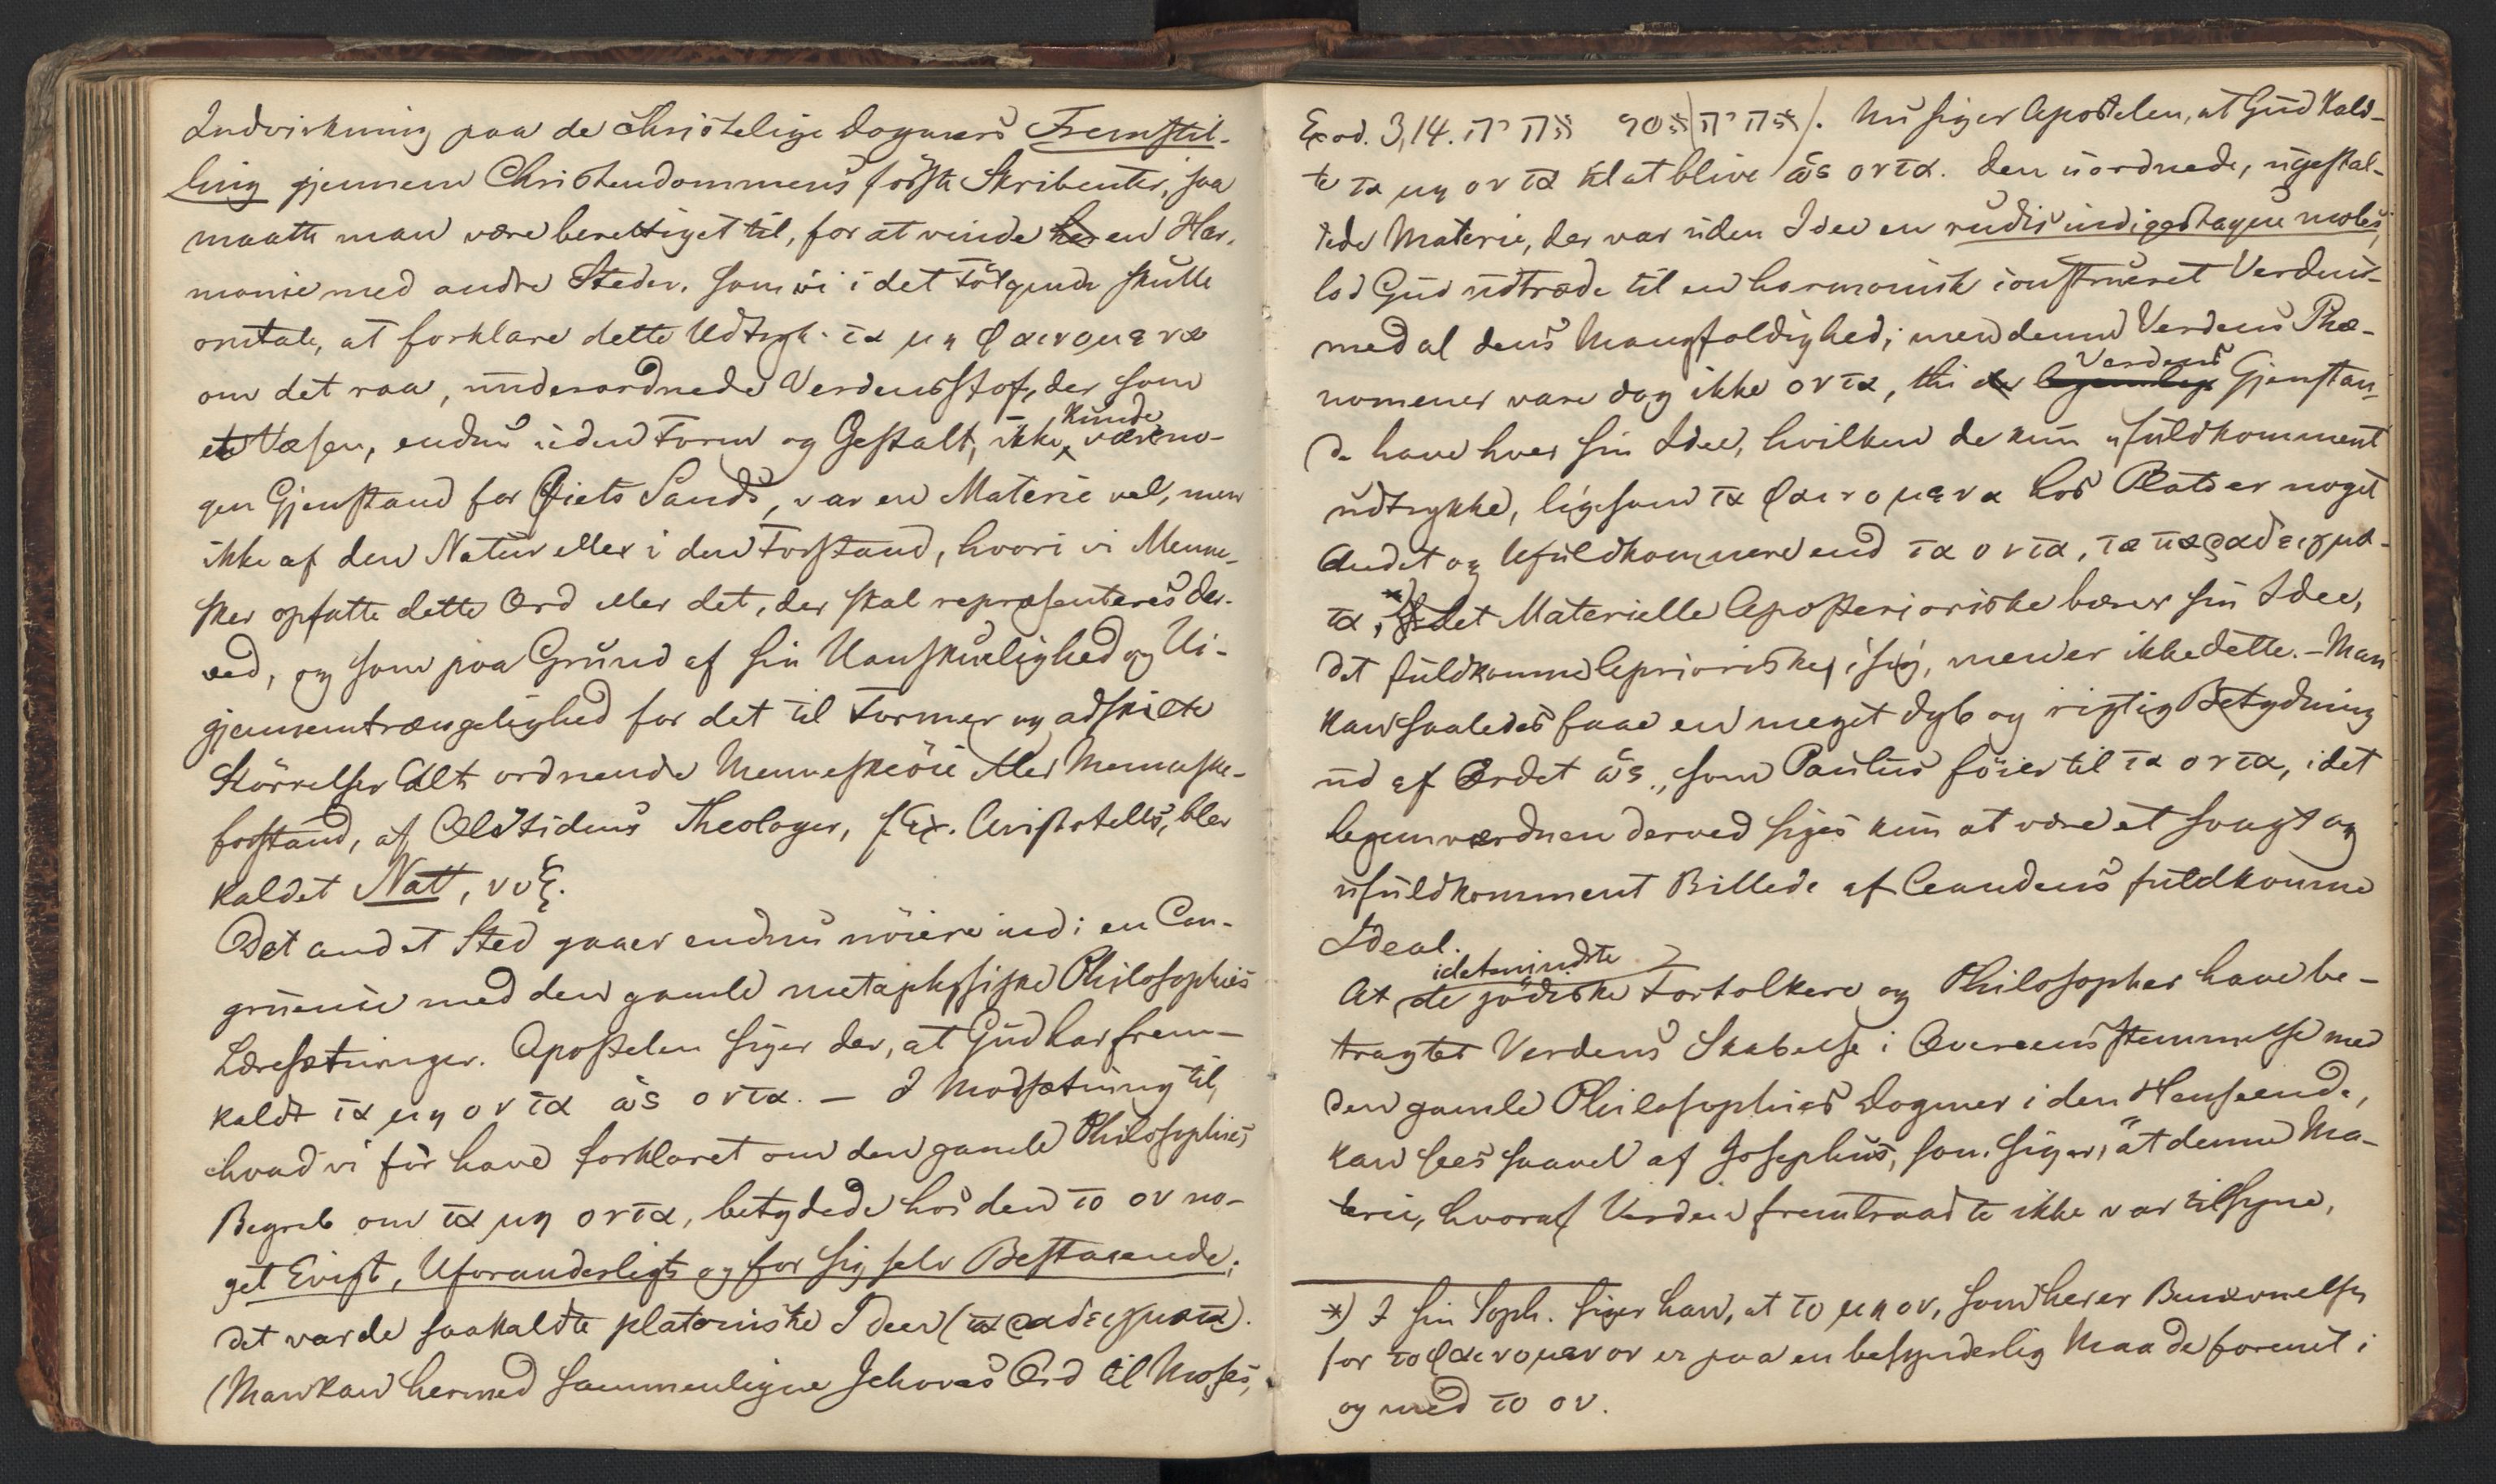 Indvirkning paa de christelige Dogmers Fremstil-
ling gjennem Christendommens første Skribenter, saa
maatte man være berettiget til, for at vinde her en Har-
monie med andre Steder, som vi i det Følgende skulle
omtale, at forklare dette Udtryk: τα μη φαινομενα
om det raa, underordnede Verdensstof, der som
et Væsen, endnu uden Form og Gestalt, ikke kunde være no-
gen Gjenstand for Øiets Sands, var en Materie vel, men
ikke af den Natur eller i den Forstand, hvori vi Menne-
sker opfatte dette Ord eller det, der skal repræsenteres der-
ved, og som paa Grund af sin Uanskuelighed og Ui-
gjennemtrængelighed for det til Former og adskilte
Størrelser Alt ordnende Menneskeøie eller Menneske-
forstand, af Oldtidens Theologer, f. Ex. Aristoteles, blev
kaldet Natt, νυξ.
Det andet Sted gaaer endnu nöiere ind i en Con-
gruense med den gamle metaphysiske Philosophies
Læresætninger. Apostelen siger der, at Gud har frem-
kaldt τα μη οντα ὡς οντα. – I Modsætning til,
hvad vi før have forklaret om den gamle Philosophies
Begreb om τα μη οντα, betydede hos den το ον no-
get Evigt, Uforanderligt og for sig selv Bestaaende;
det var de saakaldte platoniske Ideer (παραδειγματα).
(Man kan hermed sammenligne Jehovas Ord til Moses,
Exod. 3,14. אהיה אשר אהיה). Nu siger Apostelen, at Gud kald-
te τα μη οντα til at blive ὡς οντα. Den uordnede, ugestal-
tede Materie, der var uden Idee en rudis indigestaque moles,
lod Gud udtræde til en harmonisk construeret Verden
med al dens Mangfoldighed; men denne Verdens Phæ-
nomener vare dog ikke οντα, thi Verdens Gjenstan-
de have hver sin Idee, hvilken de kun ufuldkomment
udtrykke, ligesom τα φαινομενα hos Plato er noget
Andet og Ufuldkomnere end τα οντα, τα παραδειγμα-
τα, *) det Materielle Aposterioriske bærer sin Idee,
det fuldkomne Aprioriske, i sig, men er ikke dette. – Man
kan saaledes faae en meget dyb og rigtig Betydning
ud af Ordet ὡς, som Paulus föier til τα οντα, idet
legemverdnen derved siges kun at være et svagt og
ufuldkomment Billede af Aandens fuldkomne
Ideal.
At idetmindste de jødiske Fortolkere og Philosopher have be-
tragtet Verdens Skabelse i Overeensstemmelse med
den gamle Philosophies Dogmer i den Henseende,
kan sees saavel af Josephus, som siger, "at denne Ma-
terie, hvoraf Verden fremtraadte ikke var tilsyne,
*) I sin Soph. siger han, at το μη ον, som her er Benævnelsen
for το φαινομενον er paa en besynderlig Maade forenet i
og med το ον.